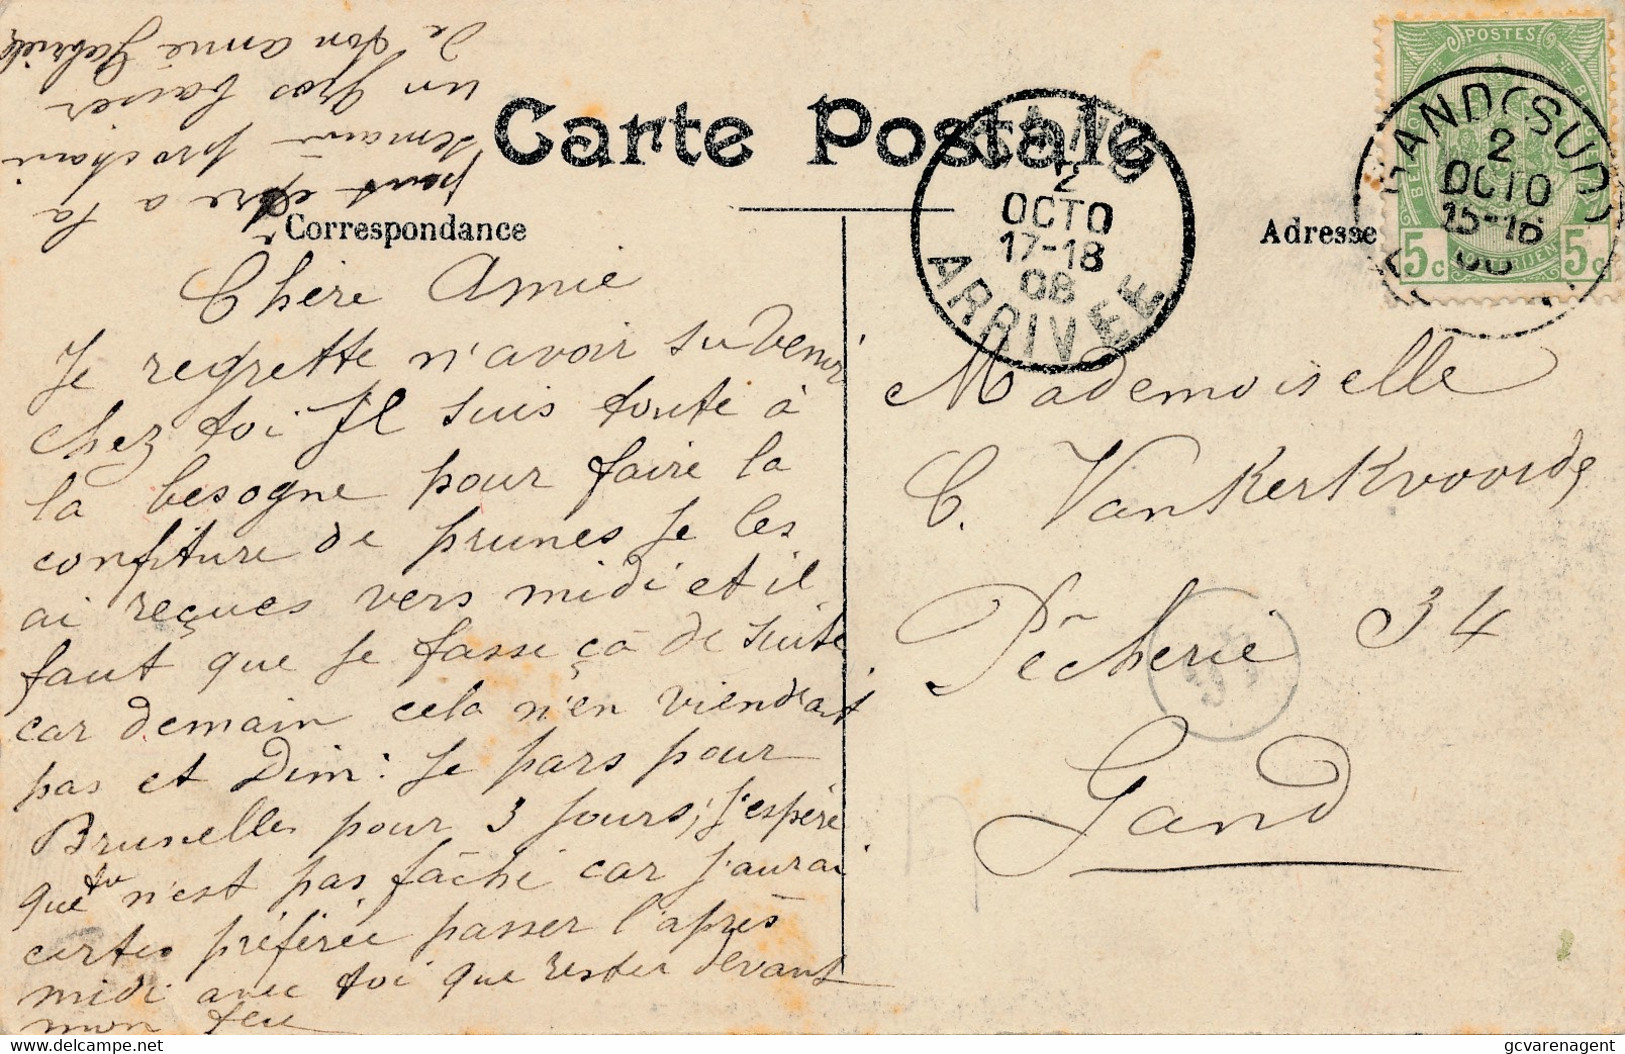 Carte Postale
Correspondance
Adresse
POSTES
5c 5c
GAND (SUD)
2
OCTO
15-16
08
GAND
2
OCTO
17-18
08
ARRIVEE
Chère Amie
Je regrette n'avoir su venir
chez toi Jl suis toute à
la besogne pour faire la
confiture de prunes je les
ai reçues vers midi et il
faut que je fasse ça de suite
car demain cela n'en viendrait
pas et Dim: je pars pour
Bruxelles pour 3 jours; j'espère
que tu n'est pas fâché car j'aurai
certes préférée passer l'après
midi avec toi que rester devant
mon feu
peut etre a la
semaine prochain
un gros baiser
de ton amie Gabriell
Mademoiselle
C. VanKerkvoorde
Pêcherie 34
Gand
gcvarenagent